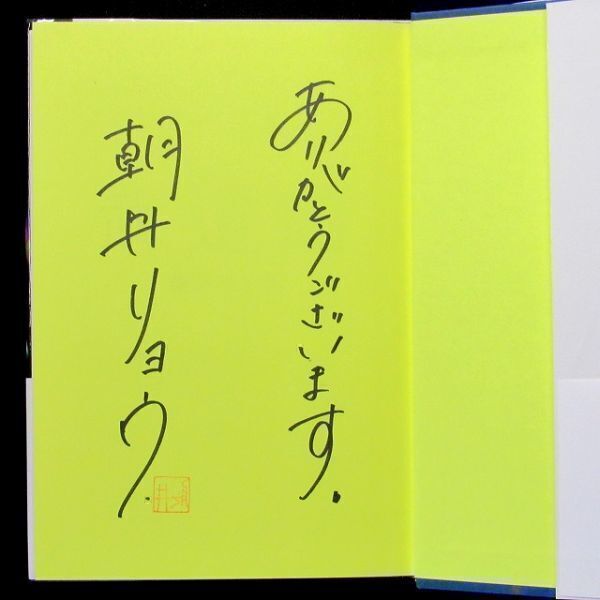 ありがとうございます.
朝井リョウ.